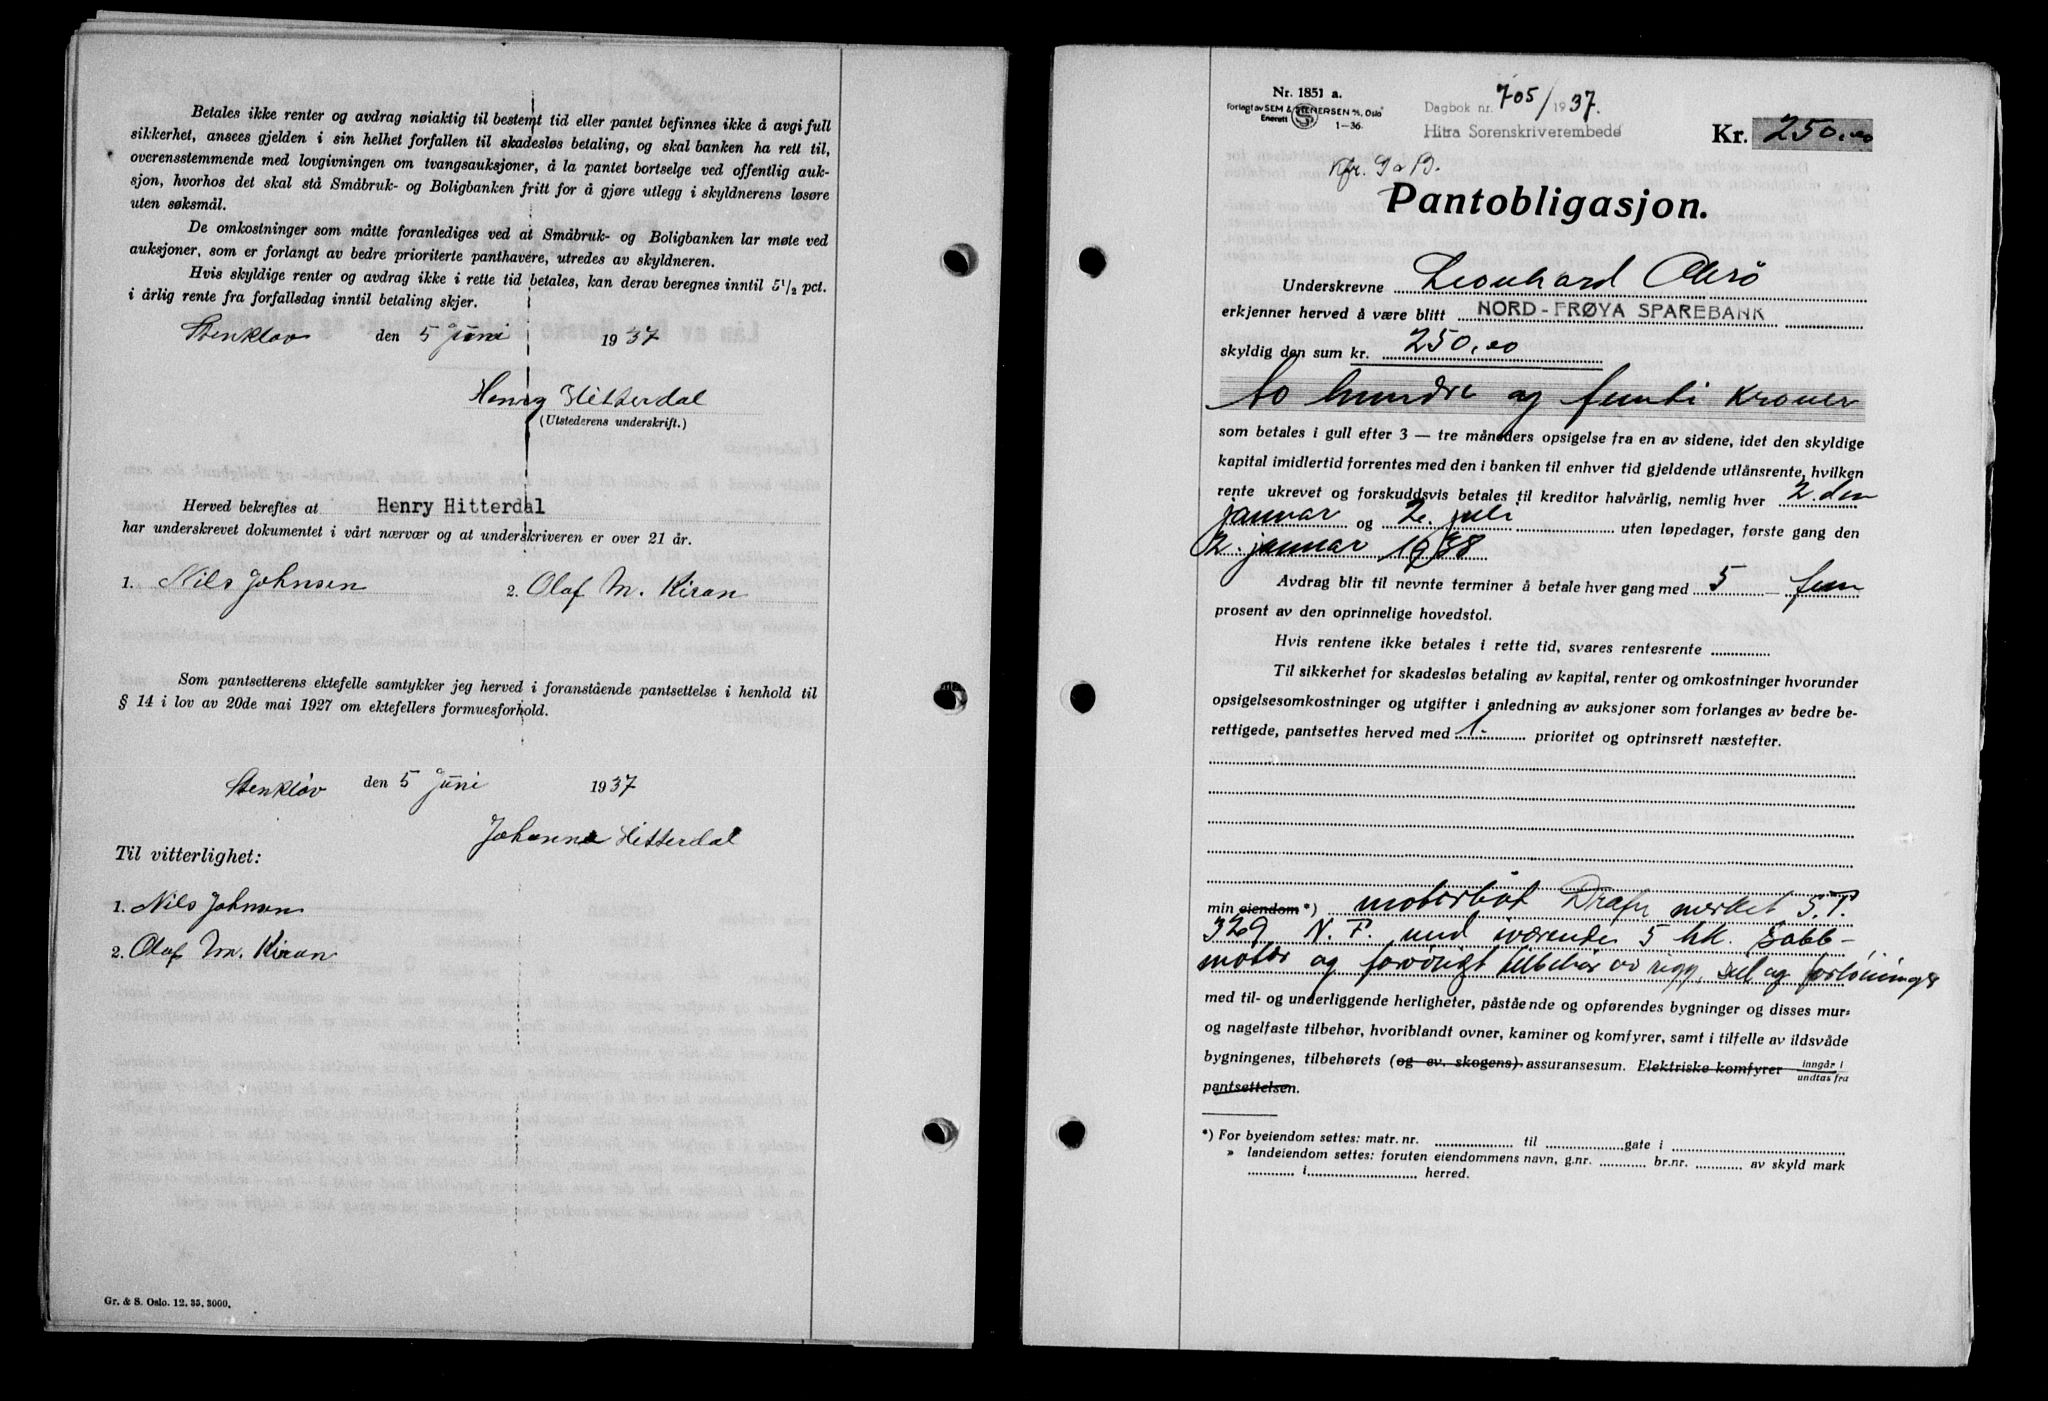 Betales ikke renter og avdrag nøiaktig til bestemt tid eller pantet befinnes ikke å avgi full
sikkerhet, ansees gjelden i sin helhet forfallen til skadesløs betaling, og skal banken ha rett til,
overensstemmende med lovgivningen om tvangsauksjoner, å la pantet bortselge ved offentlig auk-
sjon, hvorhos det skal stå Småbruk- og Boligbanken fritt for å gjøre utlegg i skyldnerens løsøre
uten søksmål.
De omkostninger som måtte foranlediges ved at Småbruk- og Boligbanken lar møte ved
auksjoner, som er forlangt av bedre prioriterte panthavere, utredes av skyldneren.
Hvis skyldige renter og avdrag ikke i rette tid betales, kan derav beregnes inntil 5 1/2 pct.
i årlig rente fra forfallsdag inntil betaling skjer.
Stenkløv den 5 Juni 1937
Henry Hitterdal
(Utstederens underskrift.)
Herved bekreftes at Henry Hitterdal
har underskrevet dokumentet i vårt nærvær og at underskriveren er over 21 år.
1. Nils Johnsen 2. Olaf M. Kiran
Som pantsetterens ektefelle samtykker jeg herved i foranstående pantsettelse i henhold til
§ 14 i lov av 20de mai 1927 om ektefellers formuesforhold.
Stenkløv den 5 Juni 1937
Johanna Hitterdal
Til vitterlighet:
1. Nils Johnsen
2. Olaf M. Kiran
Gr. & S. Oslo. 12. 35. 3000.
Nr. 1851 a.
forlagt av SEM & STENERSEN A/S, Oslo
Enerett 1-36
Dagbok nr. 705/1937.
Hitra Sorenskriverembede
Kr. 250.00
Kfr. G a B.
Pantobligasjon.
Underskrevne Leonhard Akrø
erkjenner herved å være blitt NORD-FRØYA SPAREBANK
skyldig den sum kr. 250.00
to hundre og femti kroner
som betales i gull efter 3 — tre måneders opsigelse fra en av sidene, idet den skyldige
kapital imidlertid forrentes med den i banken til enhver tid gjeldende utlånsrente, hvilken
rente ukrevet og forskuddsvis betales til kreditor halvårlig, nemlig hver 2. den
januar og 2. juli uten løpedager, første gang den
2. januar 1938
Avdrag blir til nevnte terminer å betale hver gang med 5 — fem
prosent av den oprinnelige hovedstol.
Hvis rentene ikke betales i rette tid, svares rentesrente
Til sikkerhet for skadesløs betaling av kapital, renter og omkostninger hvorunder
opsigelsesomkostninger og utgifter i anledning av auksjoner som forlanges av bedre be-
rettigede, pantsettes herved med 1. prioritet og optrinsrett næstefter.
min eiendom*) motorbåt Drafn merket S.T.
329 N.F. med iværende 5 hk. Sabb-
motor og forøvrigt tilbehør av rigg, seil og fortøininger
med til- og underliggende herligheter, påstående og opførendes bygninger og disses mur-
og nagelfaste tilbehør, hvoriblandt ovner, kaminer og komfyrer, samt i tilfelle av ildsvåde
bygningenes, tilbehørets (og ev. skogens) assuransesum. Elektriske komfyrer inngår i / undtas fra
pantsettelsen.
*) For byeiendom settes: matr. nr. til gate i
» landeiendom settes: foruten eiendommens navn, g.nr. br.nr. av skyld mark
i herred.